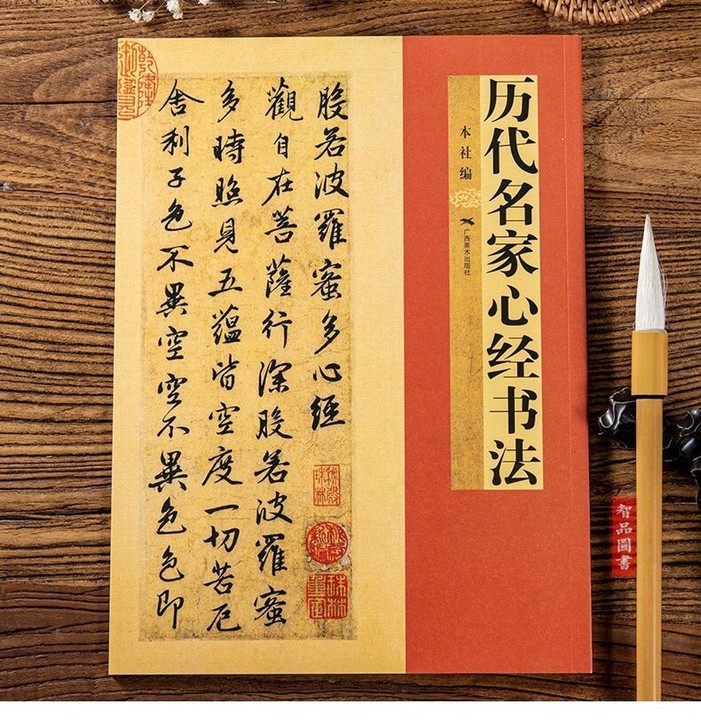 历代名家心经书法
本社编
广西美术出版社
般若波羅蜜多心經
觀自在菩薩行深般若波羅蜜
多時照見五蘊皆空度一切苦厄
舍利子色不異空空不異色色即
智品圖書